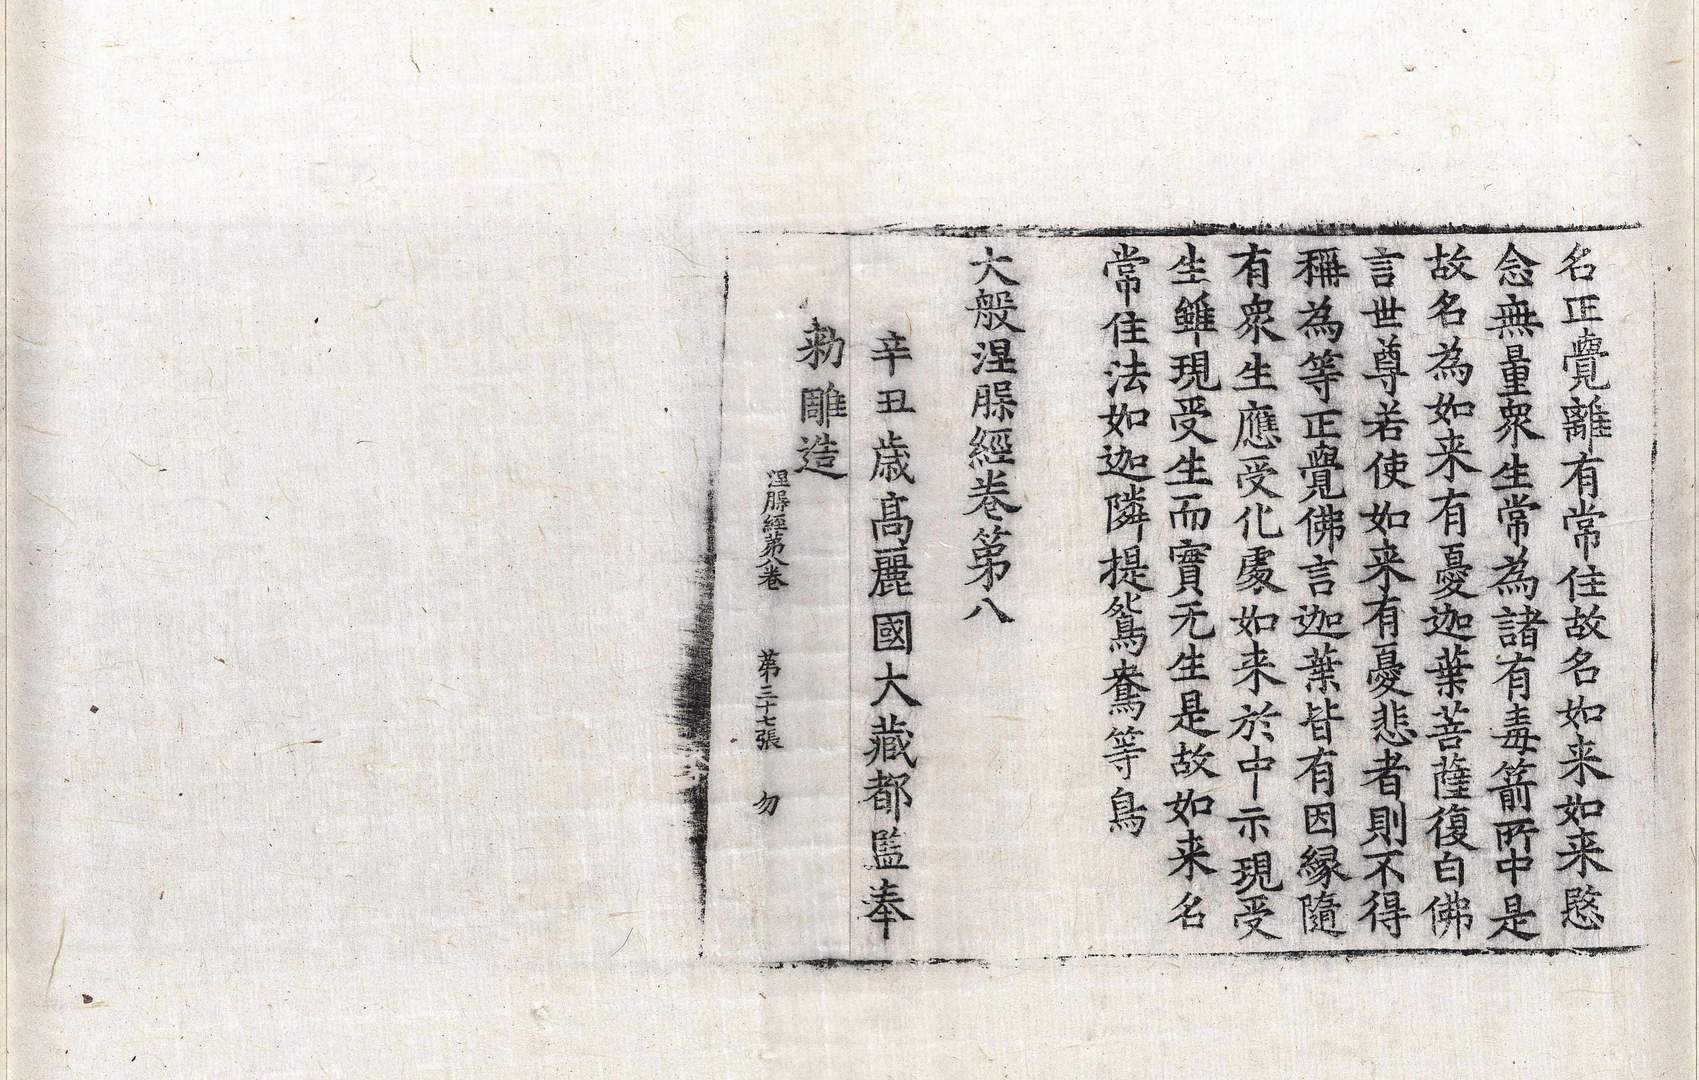 名正覺離有常住故名如来如来愍
念無量衆生常為諸有毒箭所中是
故名為如来有憂迦葉菩薩復白佛
言世尊若使如来有憂悲者則不得
稱為等正覺佛言迦葉皆有因縁隨
有衆生應受化處如来於中示現受
生雖現受生而實无生是故如来名
常住法如迦隣提鴛鴦等鳥
大般涅槃經卷第八
辛丑歳高麗國大藏都監奉
勅雕造
涅槃經第八卷 第二十七張 勿